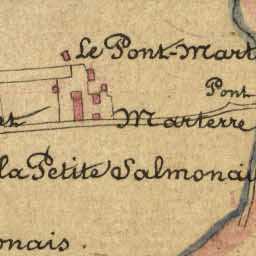 Le Pont-Mart
Pont
et Marterre
la Petite Salmonai
onais.